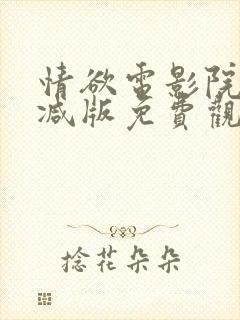 情欲电影院
减版免費觀
捻花朵朵